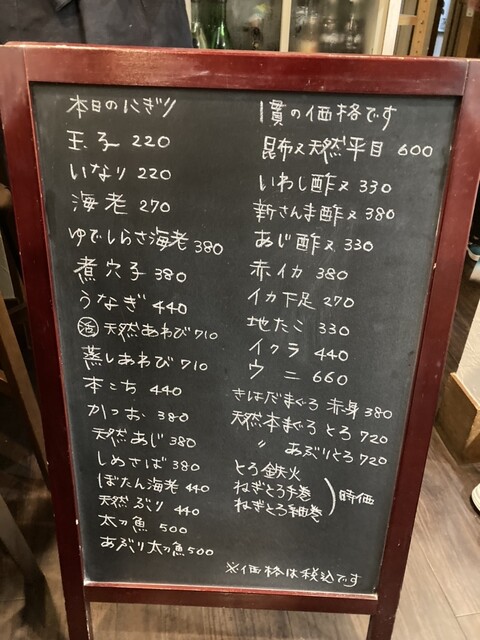 本日のにぎり
玉子 220
いなり 220
海老 270
ゆでしらさ海老 380
煮穴子 380
うなぎ 440
活 天然あわび 710
蒸しあわび 710
本こち 440
かつお 380
天然あじ 380
しめさば 380
ぼたん海老 440
天然ぶり 440
太刀魚 500
あぶり太刀魚 500
1貫の価格です
昆布〆天然平目 600
いわし酢〆 330
新さんま酢〆 380
あじ酢〆 330
赤イカ 380
イカ下足 270
地たこ 330
イクラ 440
ウニ 660
きはだまぐろ 赤身 380
天然本まぐろ とろ 720
〃 あぶりとろ 720
とろ鉄火
ねぎとろ手巻
ねぎとろ軸巻
時価
※価格は税込です